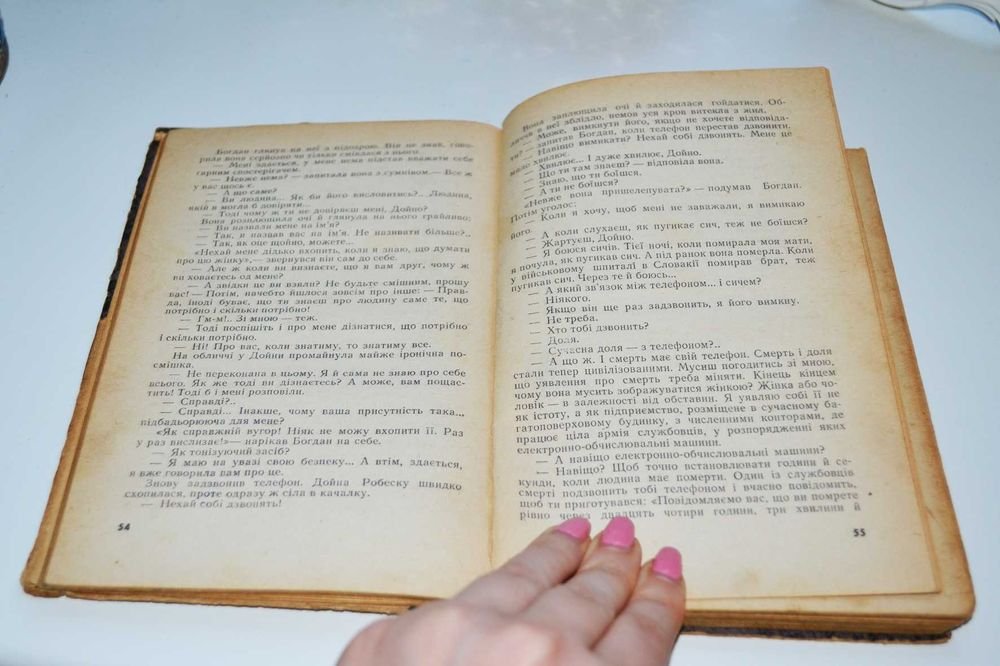 Богдан глянув на неї з підозрою. Він не знав, гово-
рила вона серйозно чи тільки сміялася з нього.
— Мені здається, у мене нема підстав вважати себе
гарним спостерігачем.
— Невже нема? — запитала вона з сумнівом.— Все ж
у вас щось є.
— А що саме?
— Ви людина... Як би його висловитись?.. Людина,
якій я могла б довіряти...
— Тоді чому ж ти не довіряєш мені, Дойно?
Вона розплющила очі й глянула на нього грайливо:
— Ви назвали мене на ім'я?
— Так, я назвав вас на ім'я. Не називати більше?..
— Так, як оце щойно, можете...
«Нехай мене дідько вхопить, коли я знаю, що думати
про цю жінку»,— звернувся він сам до себе.
— Але ж коли ви визнаєте, що я вам друг, чому ж
ви ховаєтесь од мене?
— А звідки це ви взяли? Не будьте смішним, прошу
вас! — Потім, начебто йшлося зовсім про інше: — Прав-
да, іноді буває, що ти знаєш про людину саме те, що
потрібно і скільки потрібно!
— Гм-м!.. Зі мною — теж.
— Тоді поспішіть і про мене дізнатися, що потрібно
і скільки потрібно.
— Ні! Про вас, коли знатиму, то знатиму все.
На обличчі у Дойни промайнула майже іронічна по-
смішка.
— Не переконана в цьому. Я й сама не знаю про себе
всього. Як же тоді ви дізнаєтесь? А може, вам пощас-
тить! Тоді б і мені розповіли.
— Справді?..
— Справді... Інакше, чому ваша присутність така...
підбадьорююча для мене?
«Як справжній вугор! Ніяк не можу вхопити її. Раз
у раз вислизає!»— нарікав Богдан на себе.
— Як тонізуючий засіб?
— Я маю на увазі свою безпеку... А втім, здається,
я вже говорила вам про це.
Знову задзвонив телефон. Дойна Робеску швидко
схопилася, проте одразу ж сіла в качалку.
— Нехай собі дзвонять!
54
Вона заплющила очі й заходилася гойдатися. Об-
личчя в неї зблідло, немов уся кров витекла з жил.
— Може, вимкнути його, якщо не хочете відповіда-
ти? — запитав Богдан, коли телефон перестав дзвонити.
— Навіщо вимикати? Нехай собі дзвонить. Мене це
мало хвилює.
— Хвилює... І дуже хвилює, Дойно.
— Що ти там знаєш? — відповіла вона.
— Знаю, що ти боїшся.
— А ти не боїшся?
«Невже вона пришелепувата?» — подумав Богдан.
Потім уголос:
— Коли я хочу, щоб мені не заважали, я вимикаю
його.
— А коли слухаєш, як пугикає сич, теж не боїшся?
— Жартуєш, Дойно.
— Я боюся сичів. Тієї ночі, коли помирала моя мати,
я почула, як пугикав сич. А під ранок вона померла. Коли
у військовому шпиталі в Словакії помирав брат, теж
пугикав сич. Через те й боюсь...
— А який зв'язок між телефоном... і сичем?
— Ніякого.
— Якщо він ще раз задзвонить, я його вимкну.
— Не треба.
— Хто тобі дзвонить?
— Доля.
— Сучасна доля — з телефоном?..
— А що ж. І смерть має свій телефон. Смерть і доля
стали тепер цивілізованими. Мусиш погодитись зі мною,
що уявлення про смерть треба міняти. Кінець кінцем
чому вона мусить зображуватися жінкою? Жінка або чо-
ловік — в залежності від обставин. Я уявляю собі її не
як істоту, а як підприємство, розміщене в сучасному ба-
гатоповерховому будинку, з численними конторами, де
працює ціла армія службовців, у розпорядженні яких
електронно-обчислювальні машини.
— А навіщо електронно-обчислювальні машини?
— Навіщо? Щоб точно встановлювати години й се-
кунди, коли людина має померти. Один із службовців
смерті подзвонить тобі телефоном і вчасно повідомить,
щоб ти приготувався: «Повідомляємо вас, що ви помрете
рівно через двадцять чотири години, три хвилини й
55